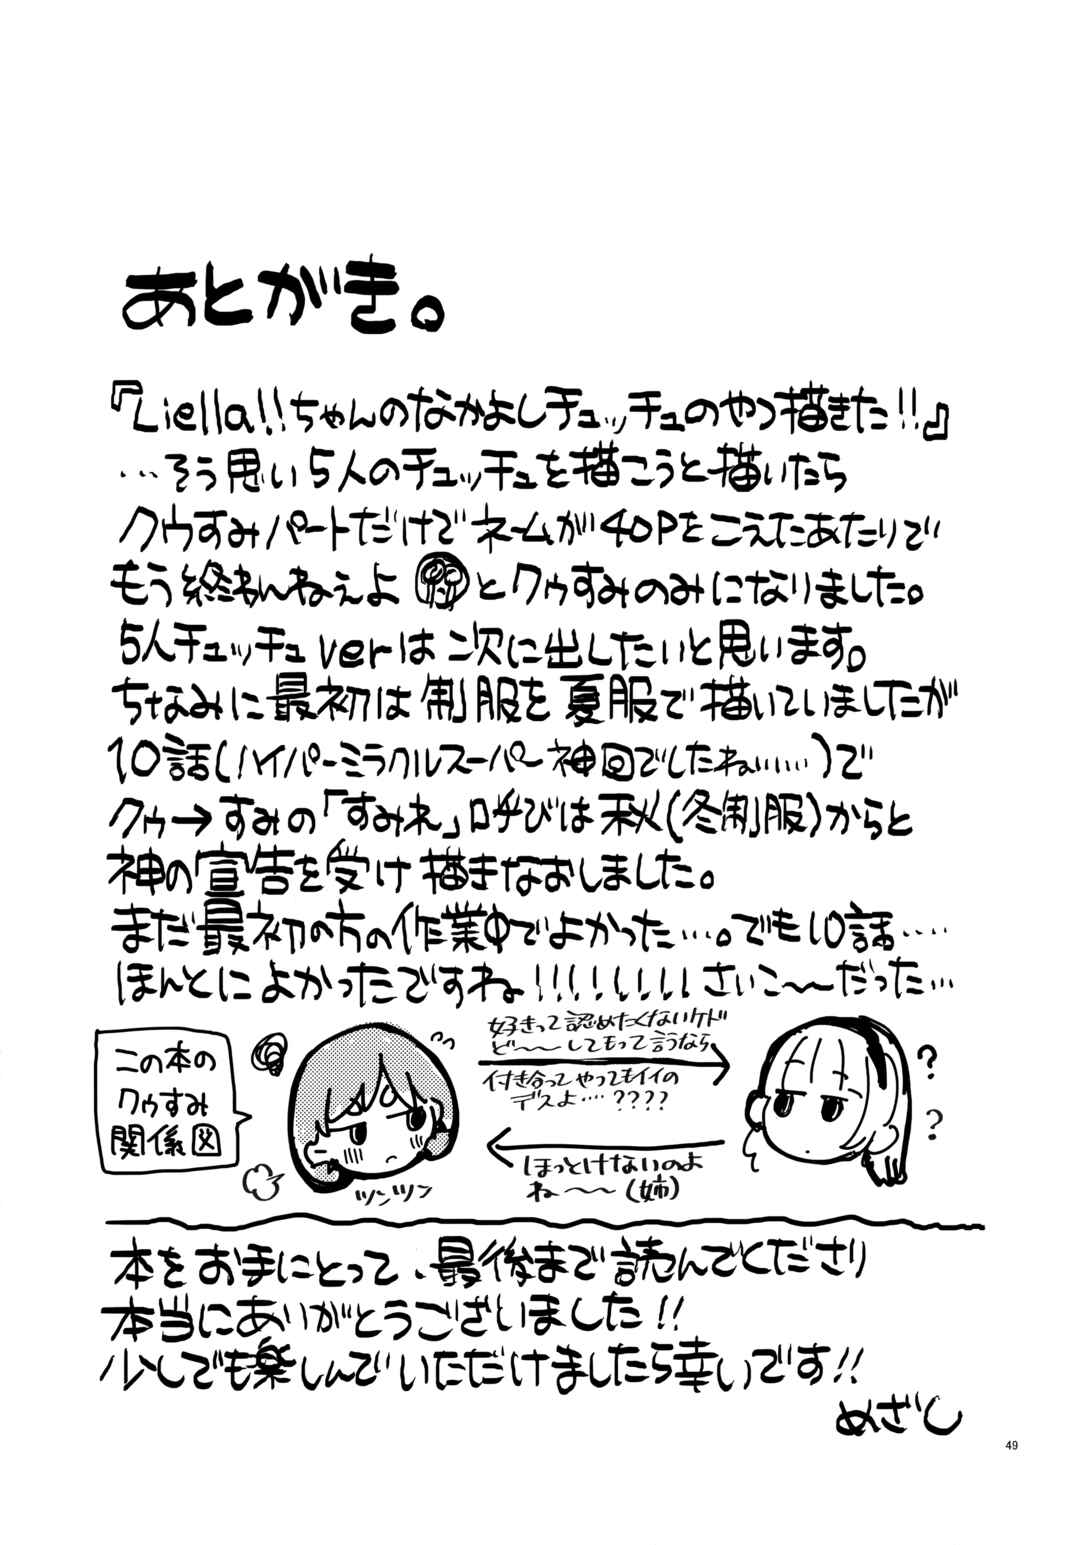 あとがき。
『Liella!!ちゃんのなかよしチュッチュのやつ描きた!!』
…そう思い5人のチュッチュを描こうと描いたら
クゥすみパートだけでネームが40Pをこえたあたりで
もう終わんねぇよ と クゥすみのみになりました。
5人チュッチュverは次に出したいと思います。
ちなみに最初は制服を夏服で描いていましたが
10話(ハイパーミラクルスーパー神回でしたね……)で
クゥ→すみの「すみれ」呼びは秋(冬制服)からと
神の宣告を受け描きなおしました。
まだ最初の方の作業中でよかった…。でも10話……
ほんとによかったですね!!!!!!!!さいこ〜〜だった…
この本の
クゥすみ
関係図
ツンツン
好きって認めたくないケド
ど〜〜してもって言うなら
付き合ってやってもイイの
デスよ…????
ほっとけないのよ
ね〜〜(姉)
?
?
本をお手にとって、最後まで読んでくださり
本当にありがとうございました!!
少しでも楽しんでいただけましたら幸いです!!
めざし
49